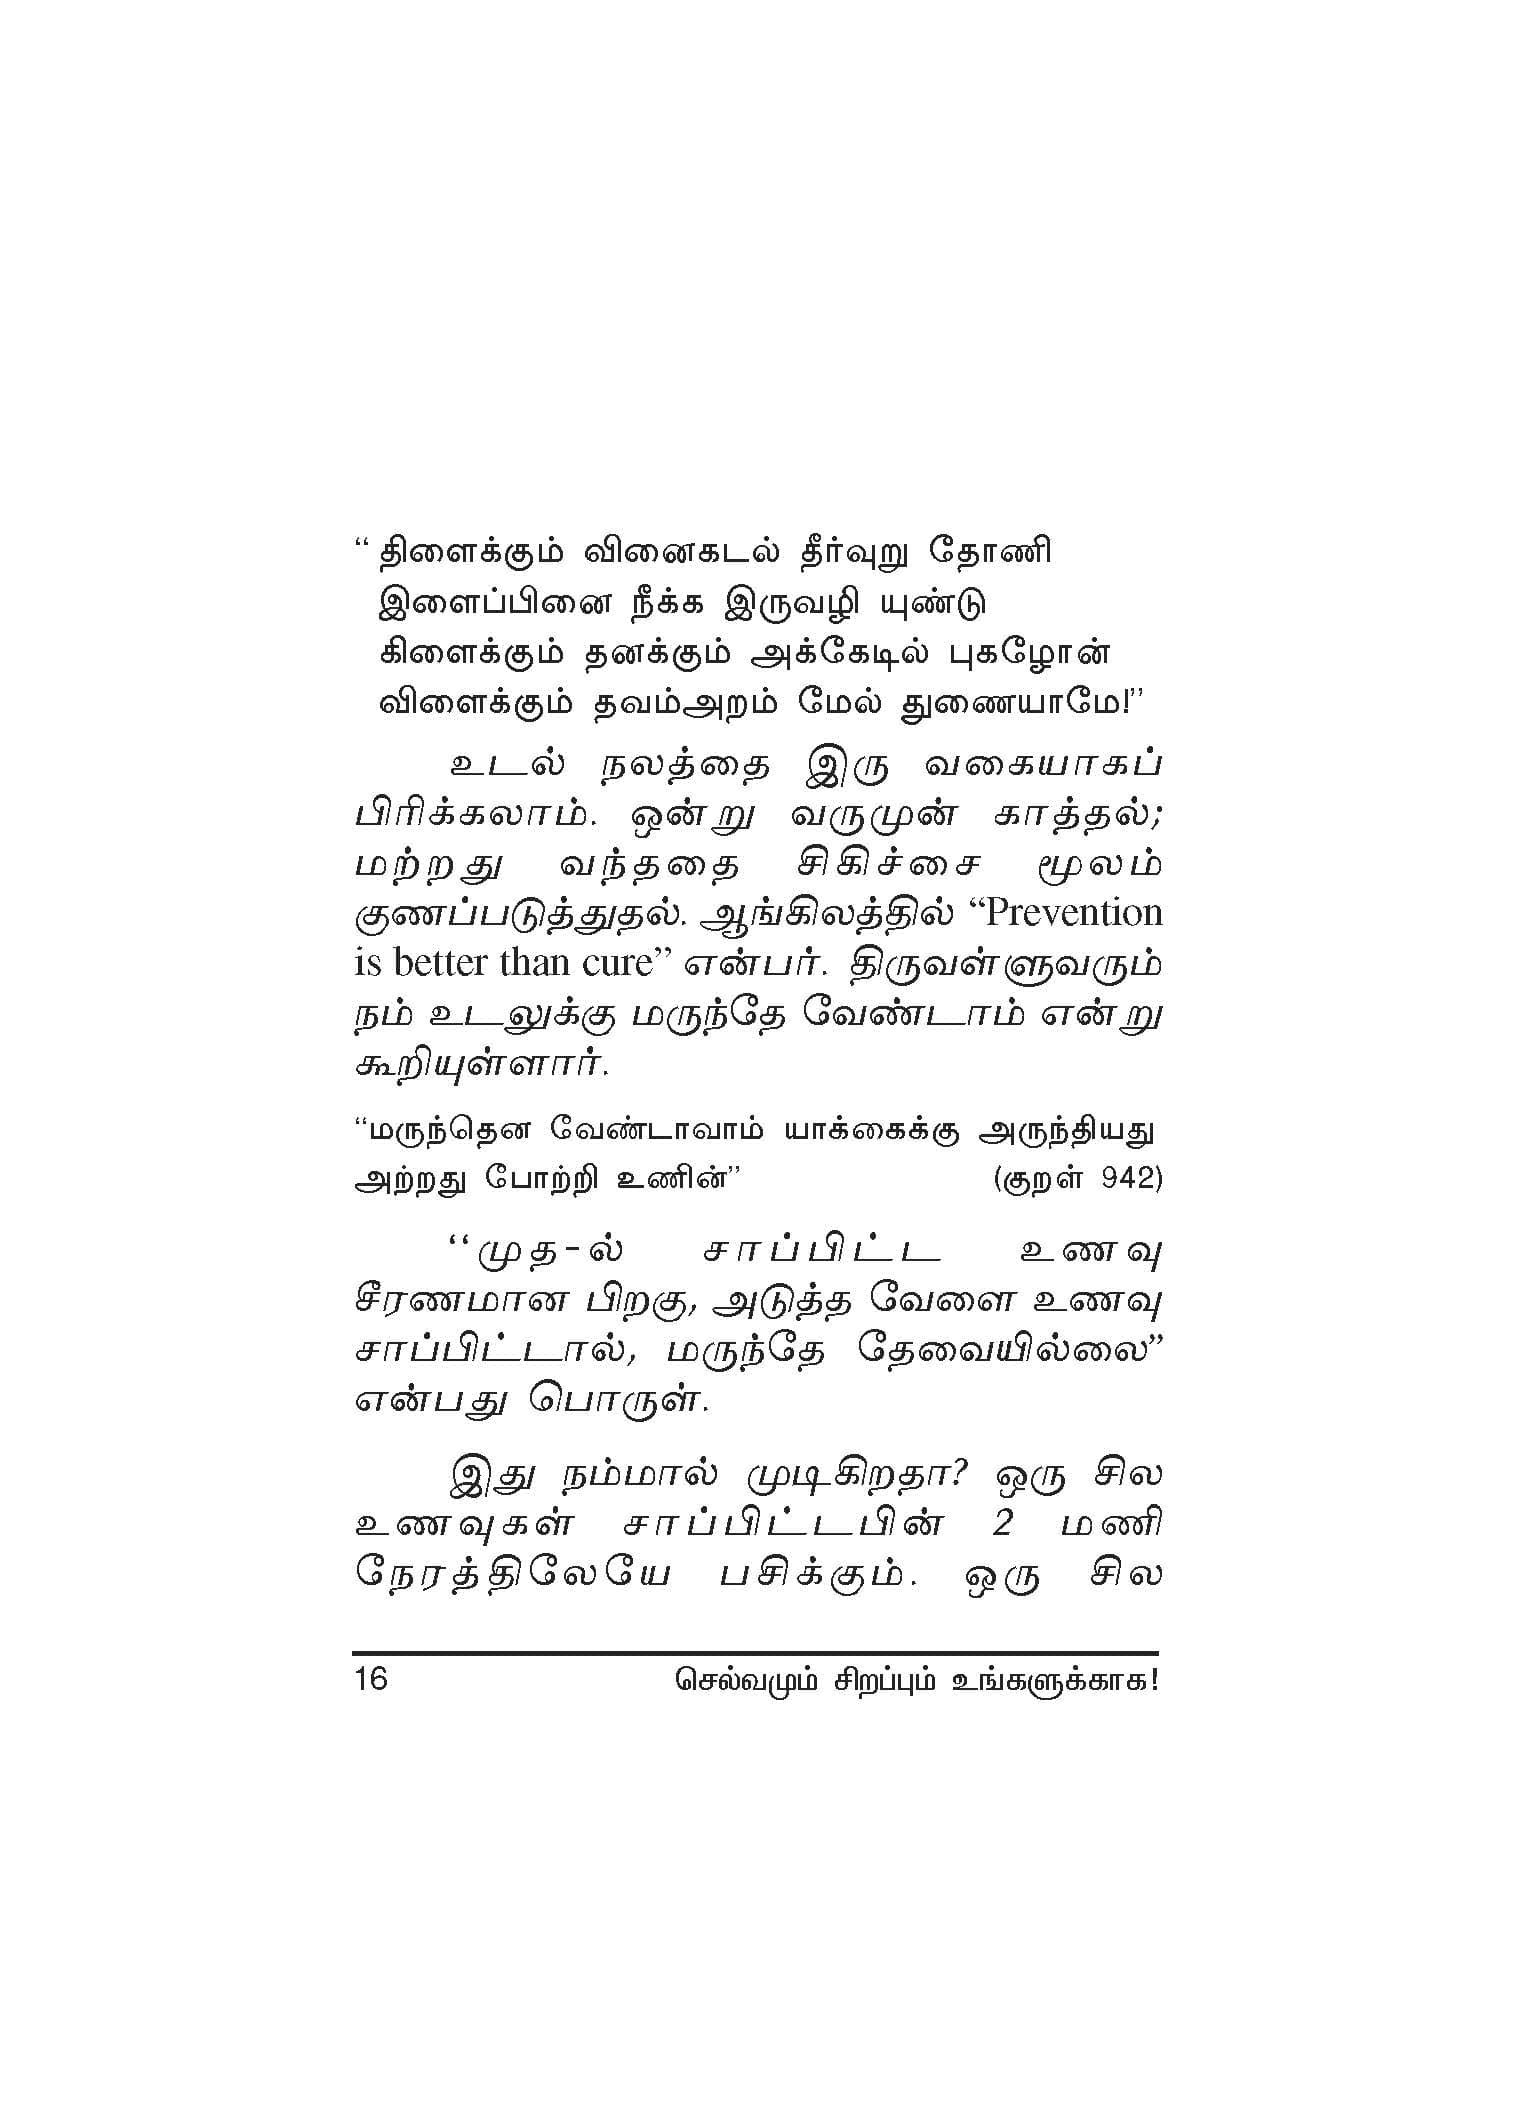 “ திளைக்கும் வினைகடல் தீர்வுறு தோணி
இளைப்பினை நீக்க இருவழி யுண்டு
கிளைக்கும் தனக்கும் அக்கேடில் புகழோன்
விளைக்கும் தவம்அறம் மேல் துணையாமே!”
உடல் நலத்தை இரு வகையாகப்
பிரிக்கலாம். ஒன்று வருமுன் காத்தல்;
மற்றது வந்ததை சிகிச்சை மூலம்
குணப்படுத்துதல். ஆங்கிலத்தில் “Prevention
is better than cure” என்பர். திருவள்ளுவரும்
நம் உடலுக்கு மருந்தே வேண்டாம் என்று
கூறியுள்ளார்.
“மருந்தென வேண்டாவாம் யாக்கைக்கு அருந்தியது
அற்றது போற்றி உணின்” (குறள் 942)
‘‘முத-ல் சாப்பிட்ட உணவு
சீரணமான பிறகு, அடுத்த வேளை உணவு
சாப்பிட்டால், மருந்தே தேவையில்லை”
என்பது பொருள்.
இது நம்மால் முடிகிறதா? ஒரு சில
உணவுகள் சாப்பிட்டபின் 2 மணி
நேரத்திலேயே பசிக்கும். ஒரு சில
16 செல்வமும் சிறப்பும் உங்களுக்காக!